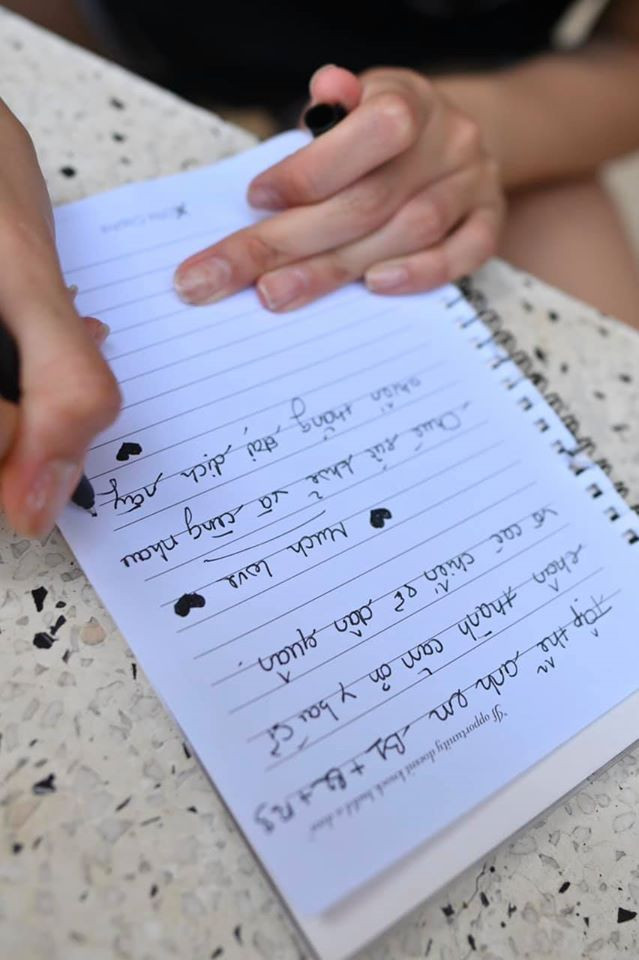 "If opportunity doesn't knock build a door"
Tập thể anh em B1 + B2 + B3
chân thành cảm ơn y bác sĩ
và các chiến sĩ dân quân.
♥ Much love ♥
Chúc sức khoẻ và cùng nhau
chiến thắng đại dịch này ♥